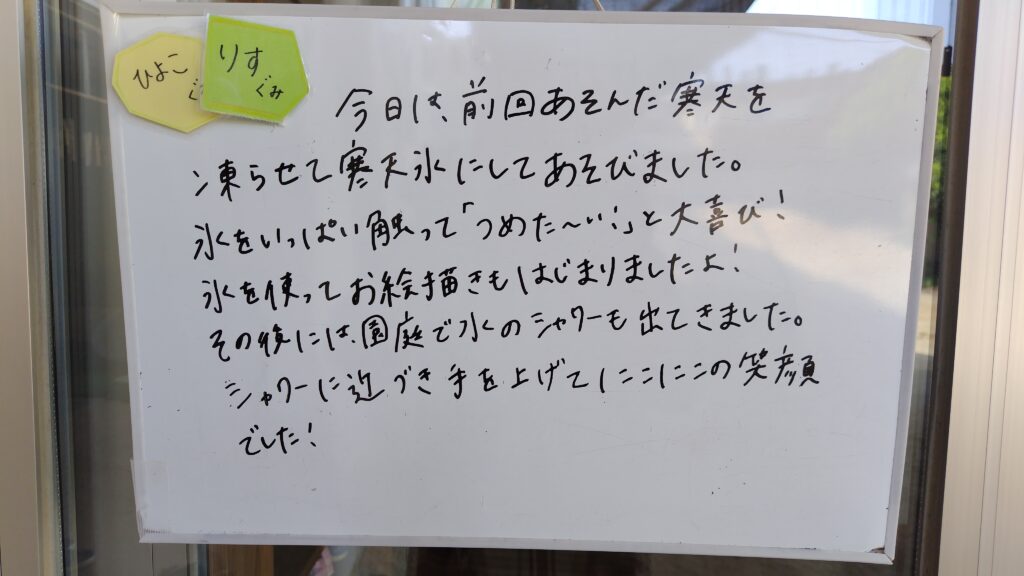 ひよこ
りす
ぐみ
今日は、前回あそんだ寒天を
凍らせて寒天氷にしてあそびました。
氷をいっぱい触って「つめた〜い!」と大喜び!
氷を使ってお絵描きもはじまりましたよ!
その後には、園庭で水のシャワーも出てきました。
シャワーに近づき手を上げてにこにこの笑顔
でした!